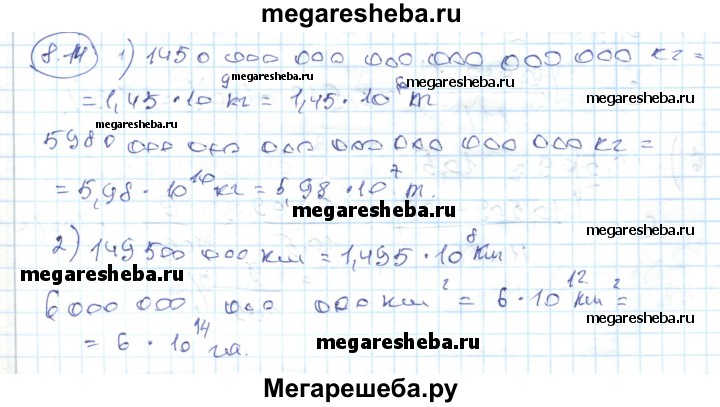 megaresheba.ru
8.14 1) 1450 000 000 000 000 000 000 кг =
megaresheba.ru
= 1,45 · 10⁹ кг = 1,45 · 10⁶ т
megaresheba.ru
megaresheba.ru
5980 000 000 000 000 000 000 000 кг =
= 5,98 · 10¹⁰ кг = 5,98 · 10⁷ т.
megaresheba.ru
megaresheba.ru
2) 149500 000 км = 1,495 · 10⁸ км.
megaresheba.ru
6000 000, 000 000 км² = 6 · 10¹² км² =
megaresheba.ru
= 6 · 10¹⁴ га.
megaresheba.ru
Мегарешеба.ру